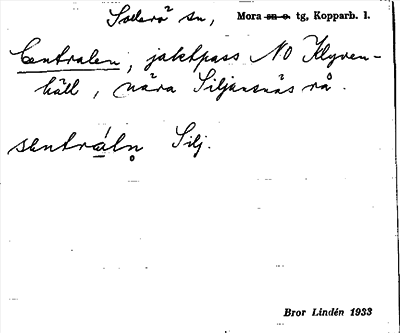 Sollerö sn, Mora s̶n̶ ̶o̶.̶ tg, Kopparb. l.
Centralen, jaktpass NO Klyven-
häll, nära Siljansnäs rå.
sentráln̥ Silj.
Bror Lindén 1933